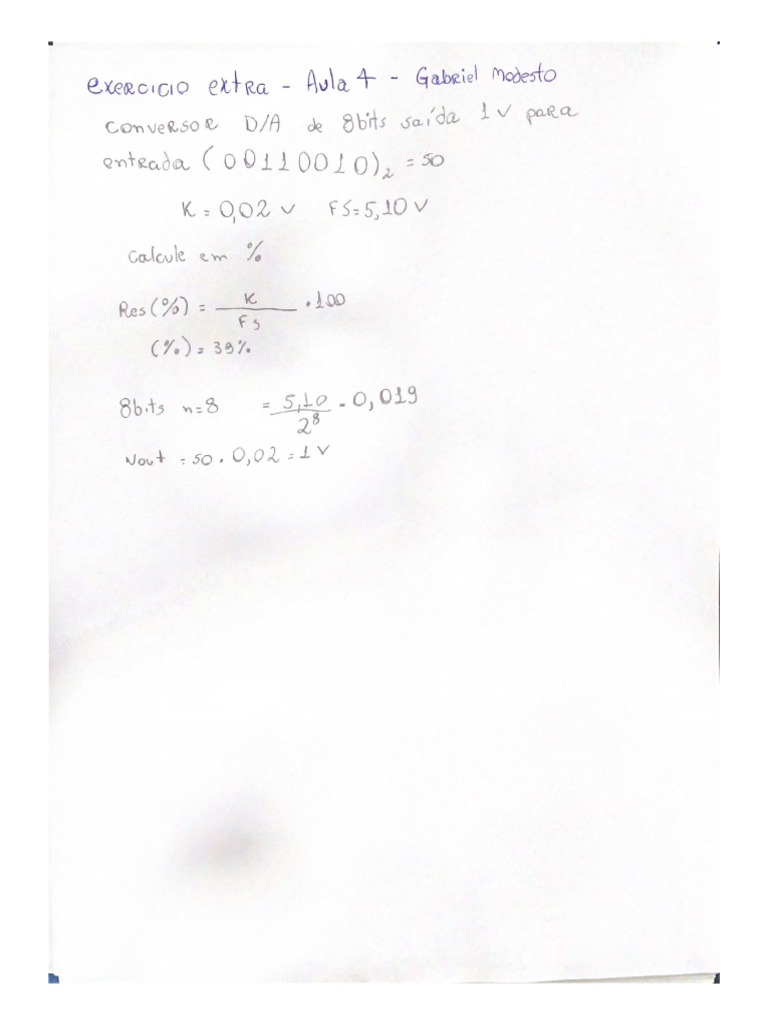 exercicio extra - Aula 4 - Gabriel Modesto
conversor D/A de 8bits saída 1v para
entrada (00110010)₂ = 50
K = 0,02 v FS=5,10 v
Calcule em %
Res(%) = K/Fs . 100
(%) = 39%
8bits n=8 = 5,10/2⁸ = 0,019
Vout = 50 . 0,02 = 1 v